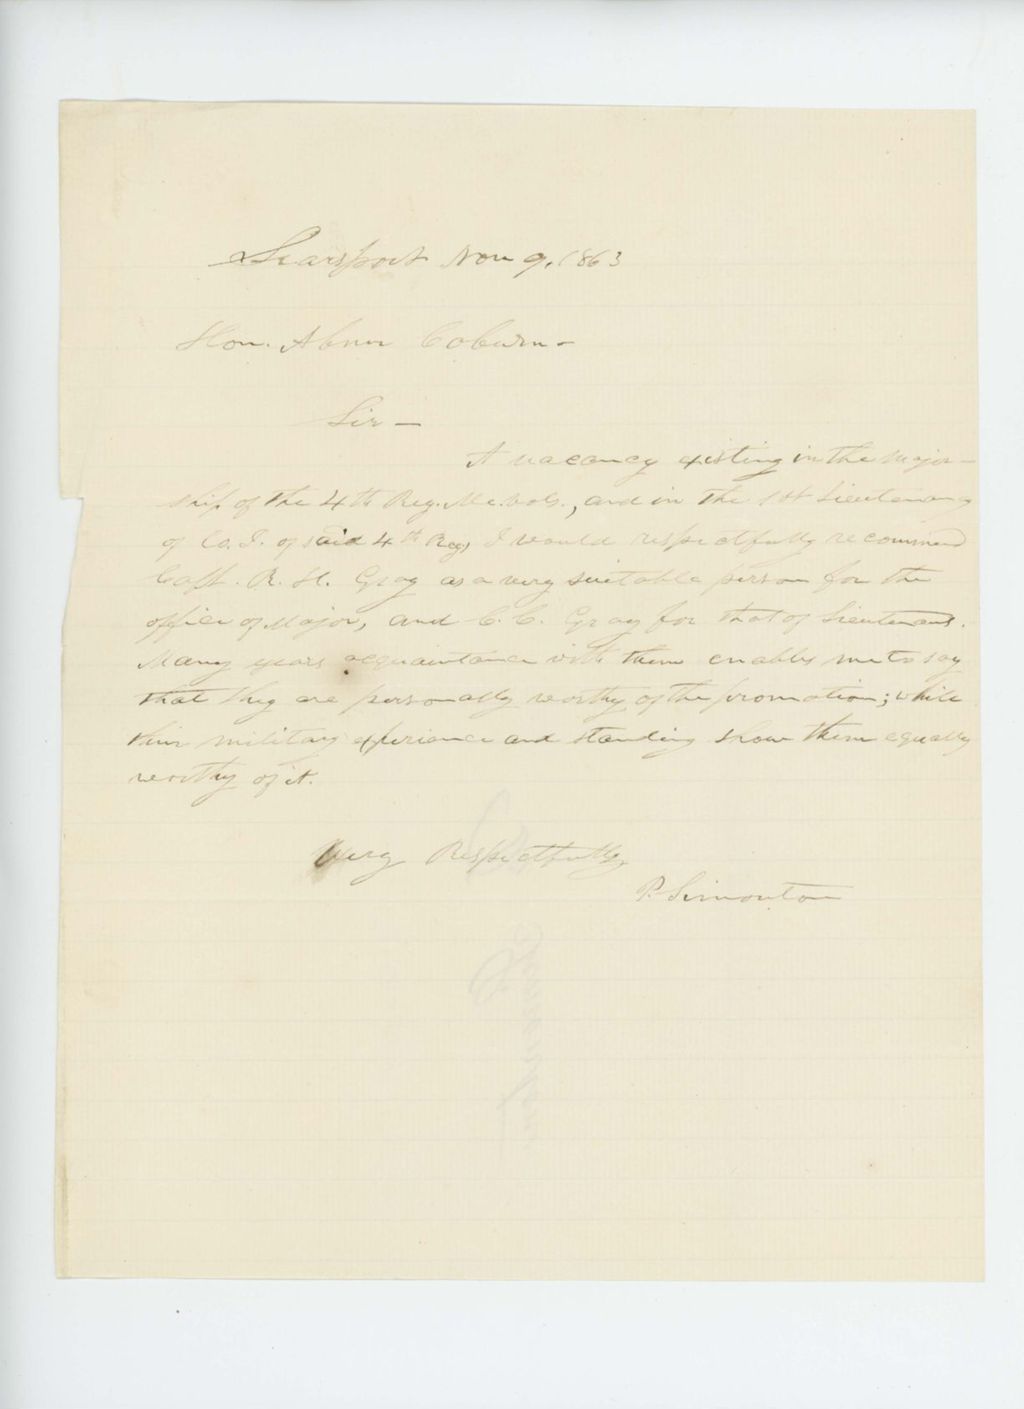 Searsport Nov 9, 1863
Hon. Abner Coburn -
Sir -
A vacancy existing in the Major-
ship of the 4th Reg. Me. Vols., and in the 1st Lieutenancy
of Co. I. of said 4th Reg, I would respectfully recommend
Capt. R. H. Gray as a very suitable person for the
office of Major, and C. C. Gray for that of Lieutenant.
Many years acquaintance with them enables me to say
that they are personally worthy of the promotion; while
their military experience and standing show them equally
worthy of it.
Very Respectfully,
P. Simonton